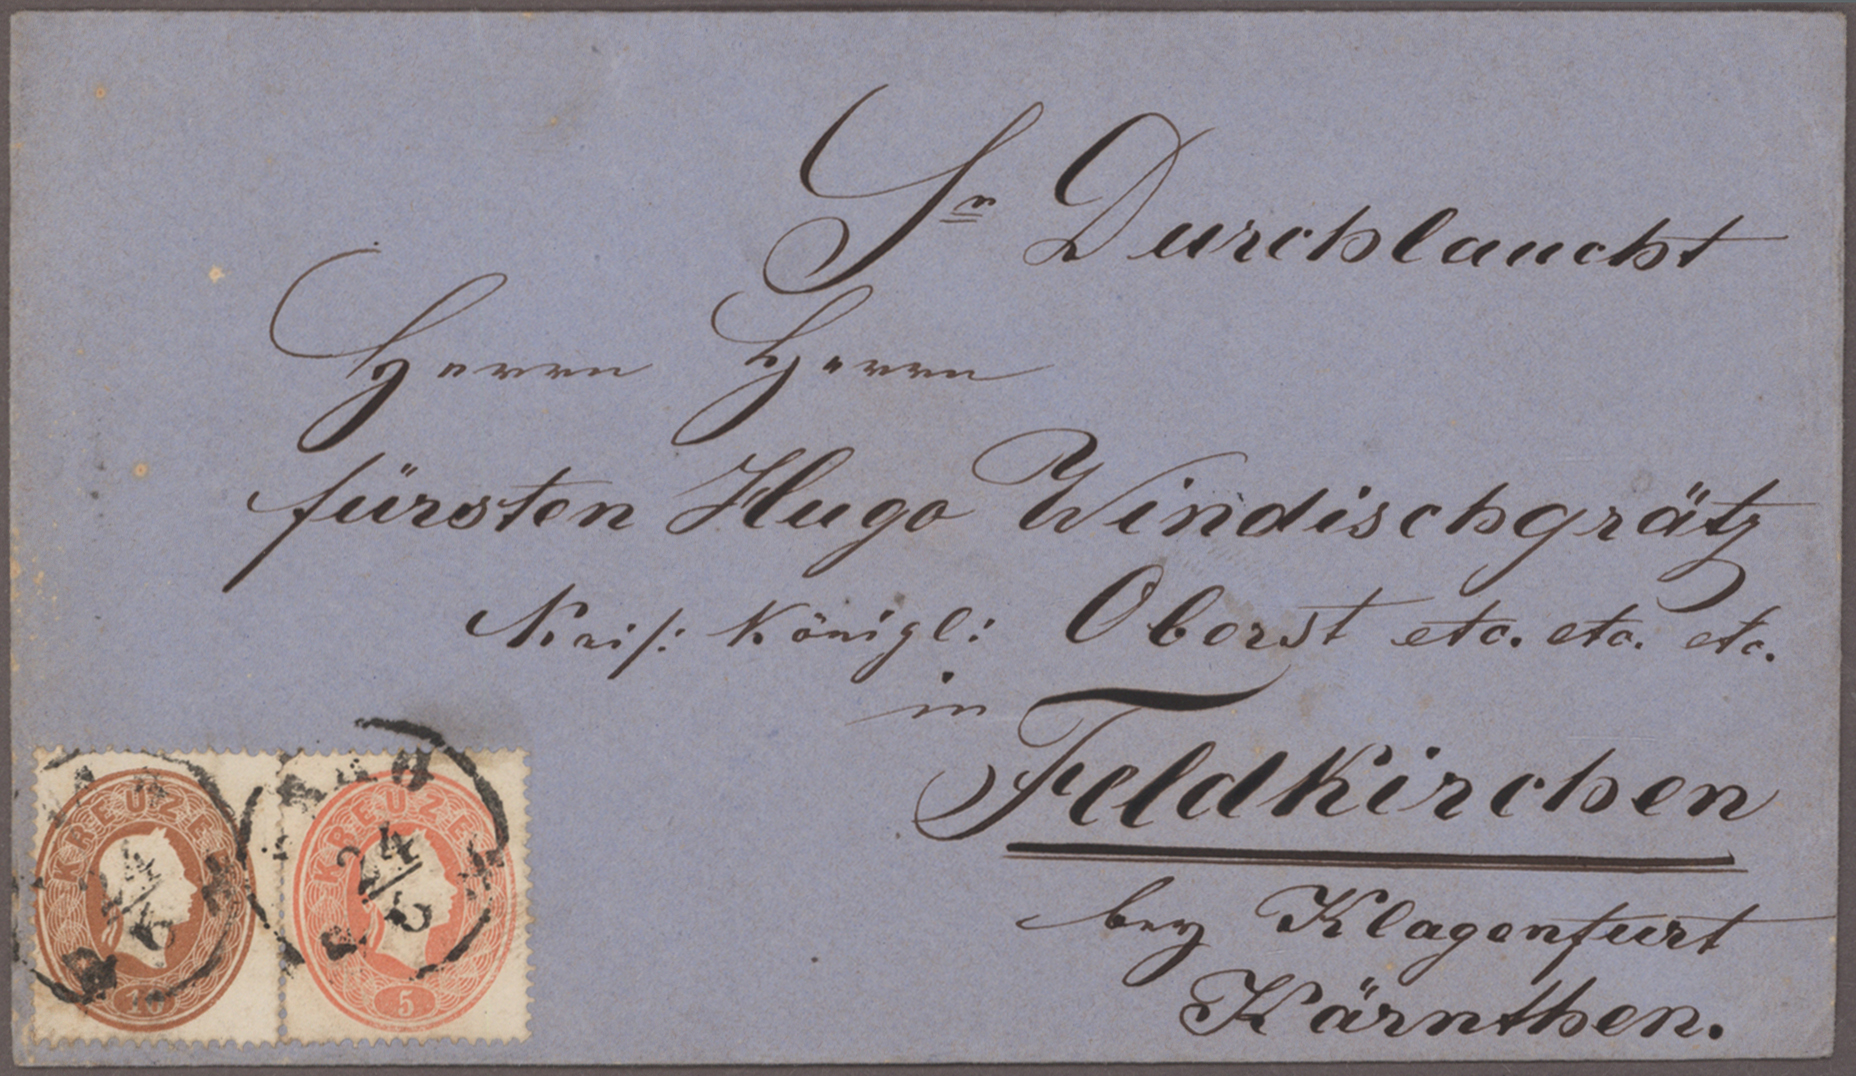 Sr Durchlaucht
Herrn Herrn
fürsten Hugo Windischgrätz
Kais: Königl: Oberst etc. etc. etc.
in
Feldkirchen
bey Klagenfurt
Kärnthen.
KREUZER
10
24/6
KREUZER
5
24/6